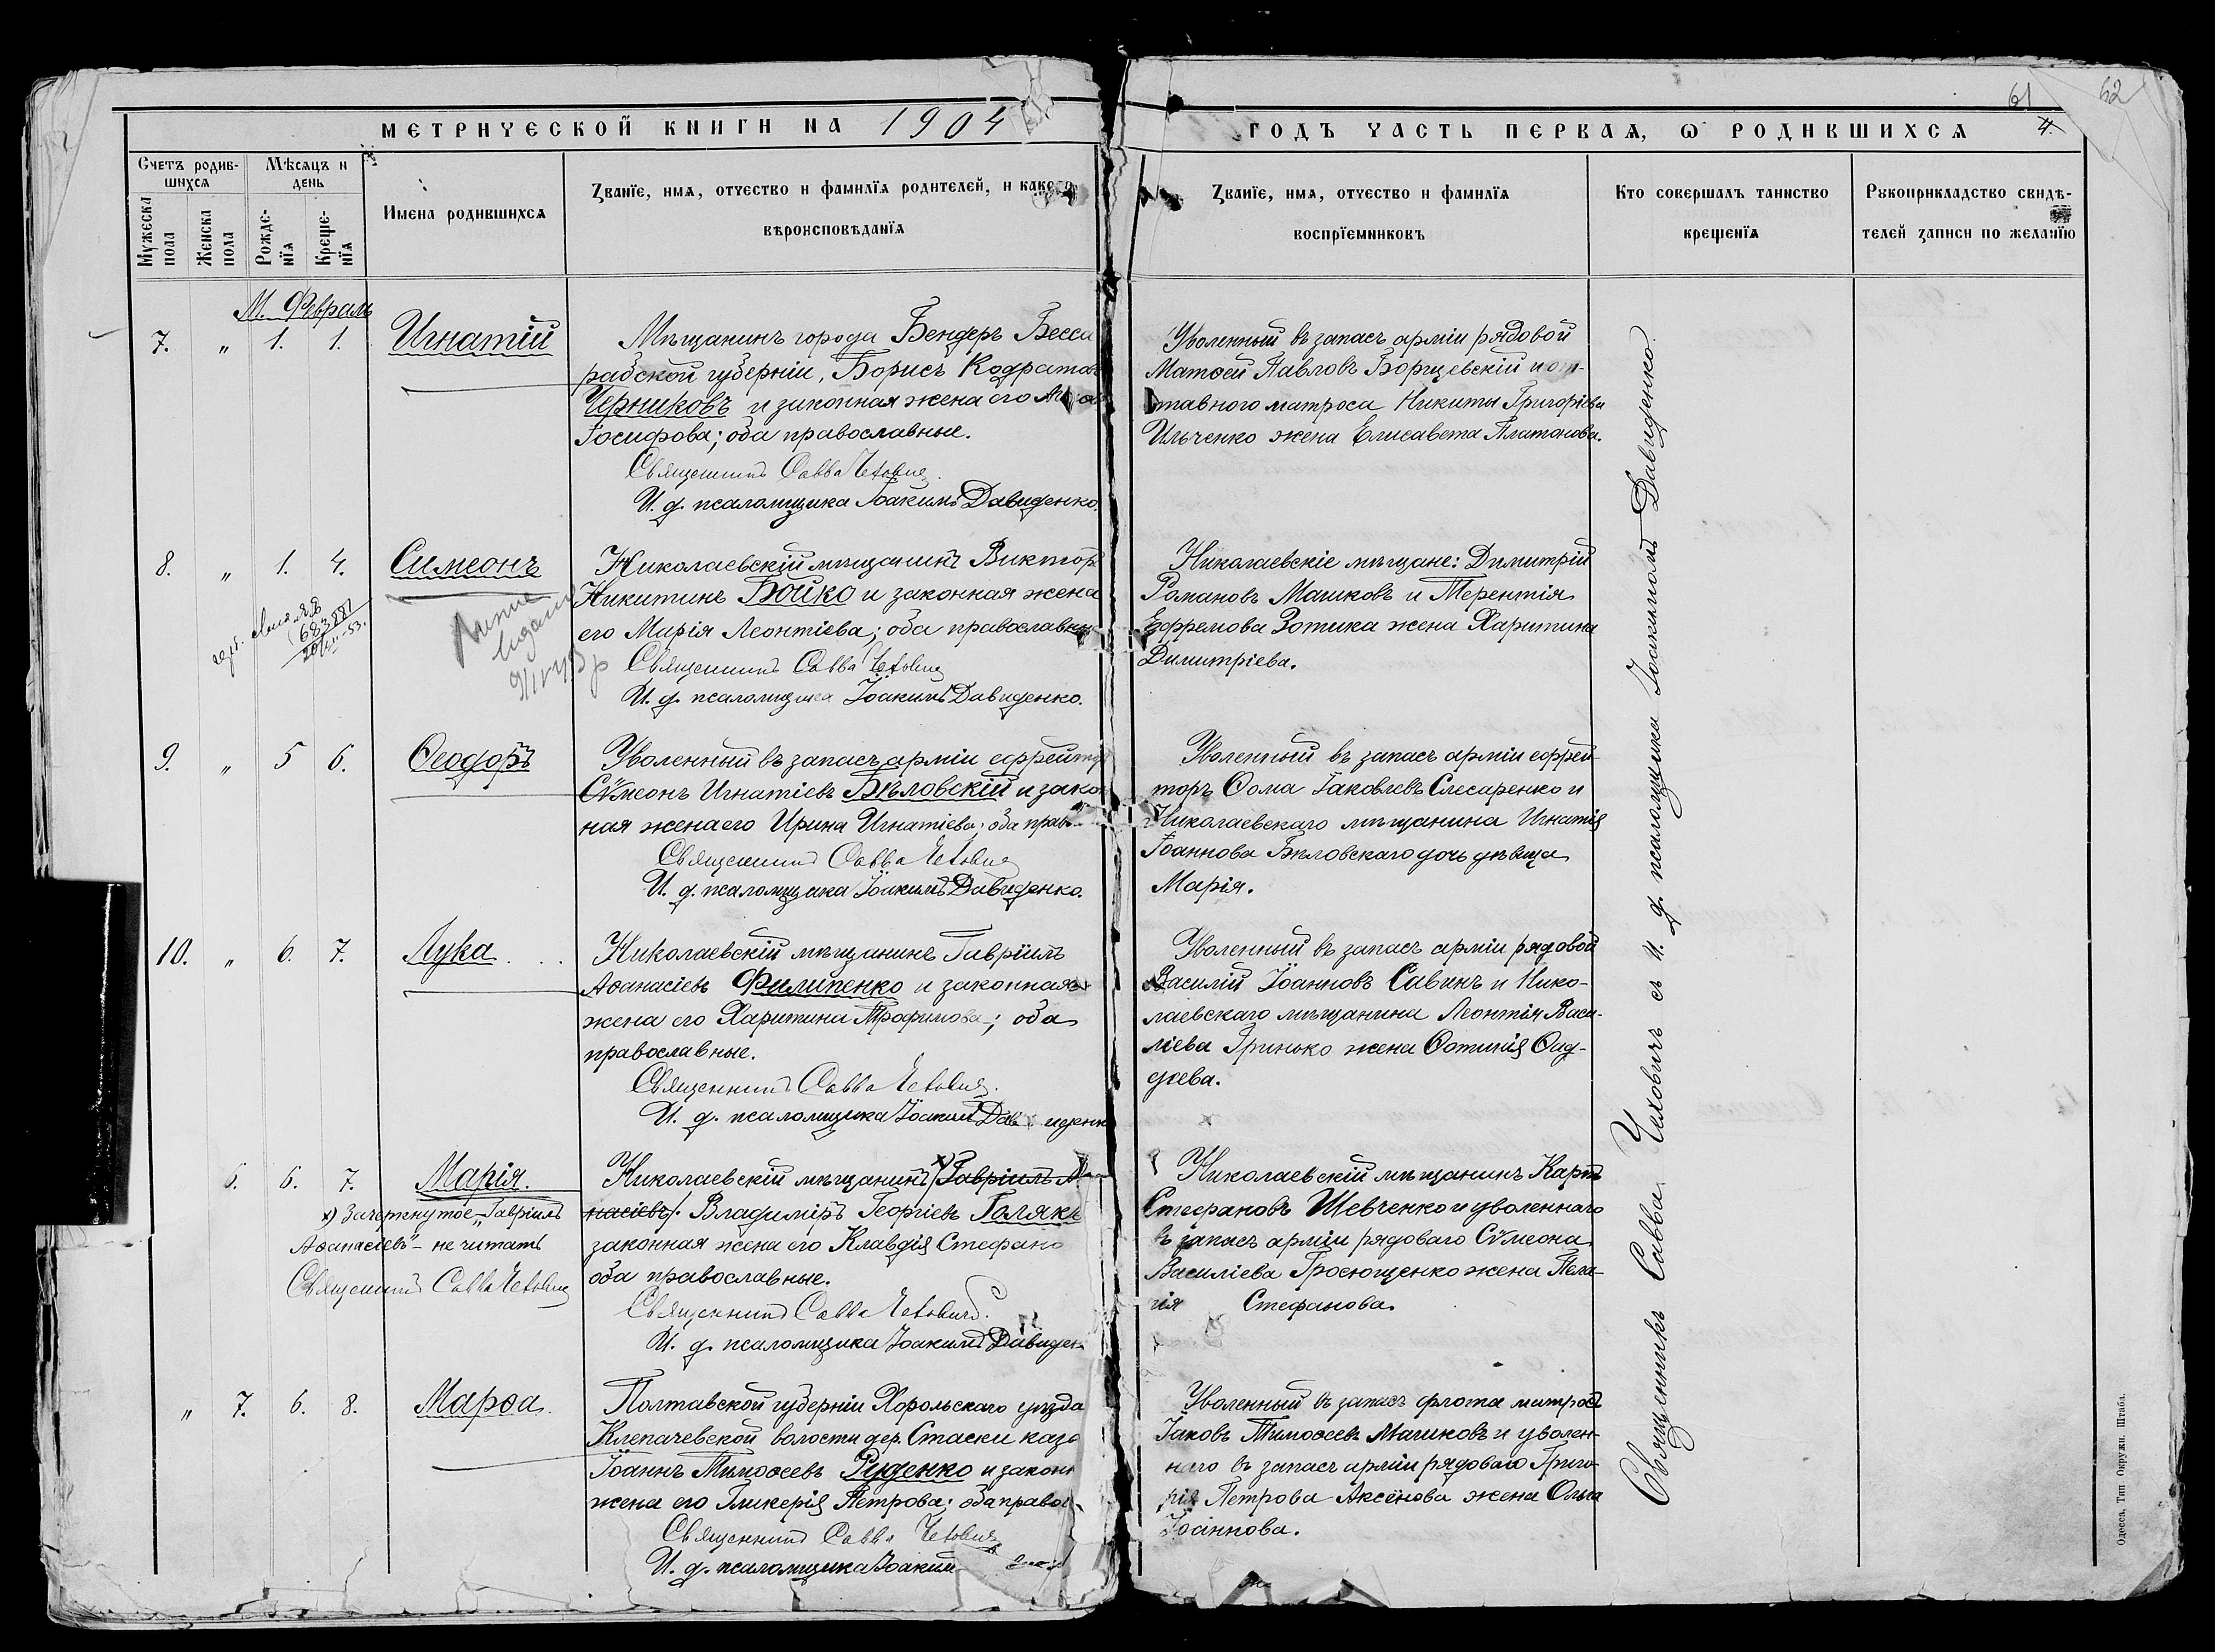 61
62
МЕТРИЧЕСКОЙ КНИГИ НА 1904
ГОДЪ ЧАСТЬ ПЕРВАЯ, Ѡ РОДИВШИХСЯ
4.
Счетъ родив-
шихся
Мѣсяцъ и
день
Мужеска
пола
Женска
пола
Рожде-
нїя
Креще-
нїя
Имена родившихся
Званїе, имя, отчество и фамилїя родителей, и какого
вѣроисповѣданїя
Званїе, имя, отчество и фамилїя
воспрїемниковъ
Кто совершалъ таинство
крещенїя
Рукоприкладство свидѣ-
телей записи по желанїю
М. Февраль
7. " 1. 1. Игнатій
Мѣщанинъ города Бендеръ Бесса
рабской губерніи, Борисъ Кодратов
Черниковъ и законная жена его
Іосифова; оба православные.
Священникъ Савва Чехович
И. д. псаломщика Іоакимъ Давиденко.
Уволенный въ запасъ арміи рядовой
Матѳей Павловъ Борщевскій и от-
ставного матроса Никиты Григоріева
Ильченко жена Елисавета Платонова.
8. " 1. 4. Симеонъ
683887
Николаевскій мѣщанинъ Виктор
Никитинъ Бойко и законная жена
его Марія Леонтіева; оба православны
Священникъ Савва Чехович
И. д. псаломщика Іоакимъ Давиденко.
Николаевскіе мѣщане: Димитрій
Романовъ Машковъ и Терентія
Ефремова Зотика жена Харитина
Димитріева.
9. " 5 6. Ѳеодоръ
Уволенный въ запасъ арміи ефрейтор
Сѵмеонъ Игнатіевъ Бѣловскій и закон
ная жена его Ирина Игнатіева; оба прав
Священникъ Савва Чехович
И. д. псаломщика Іоакимъ Давиденко.
Уволенный въ запасъ арміи ефрей-
торъ Ѳома Іаковлевъ Слесаренко и
Николаевскаго мѣщанина Игнатія
Іоаннова Бѣловскаго дочь дѣвица
Марія.
10. " 6. 7. Лука
Николаевскій мѣщанинъ Гавріилъ
Аѳанасіевъ Филипенко и законная
жена его Харитина Трофимова; оба
православные.
Священникъ Савва Чехович.
И. д. псаломщика Іоакимъ Давиденк
Уволенный въ запасъ арміи рядовой
Василій Іоанновъ Савинъ и Нико-
лаевскаго мѣщанина Леонтія Васи-
ліева Гринько жена Фотинія Ѳад-
деева.
6. 6. 7. Марія.
х) Зачеркнутое „Гавріилъ
Аѳанасіевъ" – не читать
Священникъ Савва Чехович
Николаевскій мѣщанинъ х) Гавріилъ А
насіевъ. Владиміръ Георгіевъ Голяк
законная жена его Клавдія Стефано
оба православные.
Священникъ Савва Чеховичъ.
И. д. псаломщика Іоакимъ Давиден
Николаевскій мѣщанинъ Карпъ
Стефановъ Шевченко и уволеннаго
въ запасъ арміи рядоваго Сѵмеона
Василіева жена Пела-
гія Стефанова.
" 7. 6. 8. Марѳа
Полтавской губерніи Хорольскаго уѣзда
Клепачевской волости дер. Стаски каза
Іоаннъ Тимоѳеевъ Руденко и законн
жена его Гликерія Петрова; оба правос
Священникъ Савва Чехович
И. д. псаломщика Іоаким
Уволенный въ запасъ флота матросъ
Іаковъ Тимоѳеевъ Машковъ и уволен-
наго въ запасъ арміи рядоваго Григо-
рія Петрова Аксёнова жена Ольга
Іоаннова.
Священникъ Савва Чеховичъ съ и. д. псаломщика Іоакимомъ Давиденко.
Одесса, Тип Окружн. Штаба.